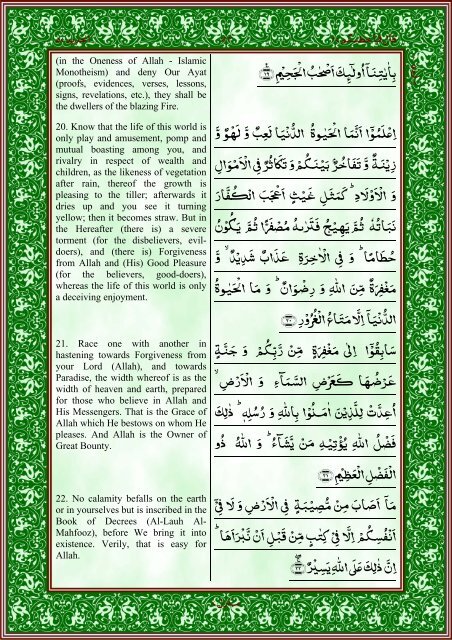 (in the Oneness of Allah - Islamic
Monotheism) and deny Our Ayat
(proofs, evidences, verses, lessons,
signs, revelations, etc.), they shall be
the dwellers of the blazing Fire.
بِاٰيٰتِنَاۤ اُولٰٓٮِٕكَ اَصْحٰبُ الْجَحِيْمِ ﴿١٩﴾
20. Know that the life of this world is
only play and amusement, pomp and
mutual boasting among you, and
rivalry in respect of wealth and
children, as the likeness of vegetation
after rain, thereof the growth is
pleasing to the tiller; afterwards it
dries up and you see it turning
yellow; then it becomes straw. But in
the Hereafter (there is) a severe
torment (for the disbelievers, evil-
doers), and (there is) Forgiveness
from Allah and (His) Good Pleasure
(for the believers, good-doers),
whereas the life of this world is only
a deceiving enjoyment.
اِعْلَمُوْۤا اَنَّمَا الْحَيٰوةُ الدُّنْيَا لَعِبٌ وَّ لَهْوٌ وَّ
زِيْنَةٌ وَّ تَفَاخُرٌۢ بَيْنَكُمْ وَ تَكَاثُرٌ فِى الْاَمْوَالِ
وَ الْاَوْلَادِ ؕ كَمَثَلِ غَيْثٍ اَعْجَبَ الْكُفَّارَ
نَبَاتُهٗ ثُمَّ يَهِيْجُ فَتَرٰٮهُ مُصْفَرًّا ثُمَّ يَكُوْنُ
حُطَامًا ؕ وَ فِى الْاٰخِرَةِ عَذَابٌ شَدِيْدٌ ۙ وَّ
مَغْفِرَةٌ مِّنَ اللّٰهِ وَ رِضْوَانٌ ؕ وَ مَا الْحَيٰوةُ
الدُّنْيَاۤ اِلَّا مَتَاعُ الْغُرُوْرِ ﴿٢٠﴾
21. Race one with another in
hastening towards Forgiveness from
your Lord (Allah), and towards
Paradise, the width whereof is as the
width of heaven and earth, prepared
for those who believe in Allah and
His Messengers. That is the Grace of
Allah which He bestows on whom He
pleases. And Allah is the Owner of
Great Bounty.
سَابِقُوْۤا اِلٰى مَغْفِرَةٍ مِّنْ رَّبِّكُمْ وَ جَنَّةٍ
عَرْضُهَا كَعَرْضِ السَّمَآءِ وَ الْاَرْضِ ۙ
اُعِدَّتْ لِلَّذِيْنَ اٰمَنُوْا بِاللّٰهِ وَ رُسُلِهٖ ؕ ذٰلِكَ
فَضْلُ اللّٰهِ يُؤْتِيْهِ مَنْ يَّشَآءُ ؕ وَ اللّٰهُ ذُو
الْفَضْلِ الْعَظِيْمِ ﴿٢١﴾
22. No calamity befalls on the earth
or in yourselves but is inscribed in the
Book of Decrees (Al-Lauh Al-
Mahfooz), before We bring it into
existence. Verily, that is easy for
Allah.
مَاۤ اَصَابَ مِنْ مُّصِيْبَةٍ فِى الْاَرْضِ وَ لَا فِىْۤ
اَنْفُسِكُمْ اِلَّا فِىْ كِتٰبٍ مِّنْ قَبْلِ اَنْ نَّبْرَاَهَا ؕ
اِنَّ ذٰلِكَ عَلَى اللّٰهِ يَسِيْرٌ ﴿٢٢﴾